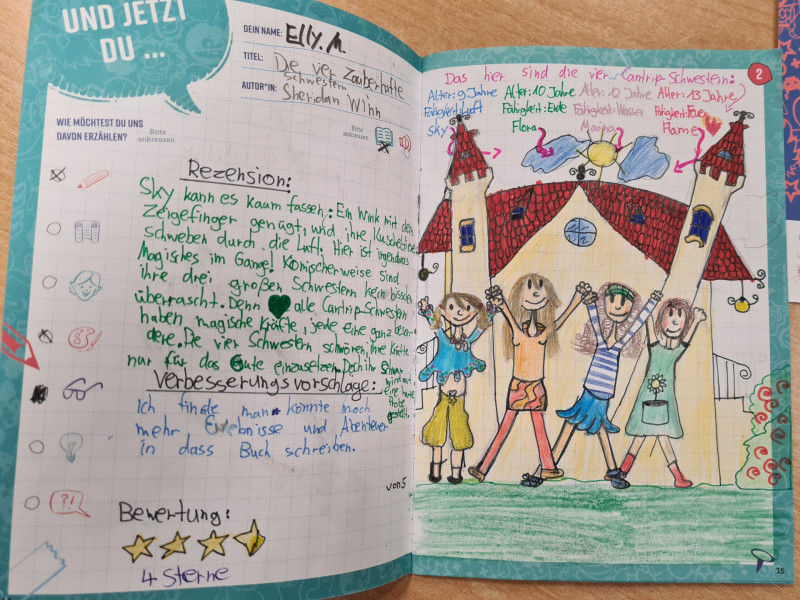 UND JETZT
DU ...
DEIN NAME: Elly. M.
TITEL: Die vier Zauberhafte
schwestern
AUTOR*IN: Sheridan Winn
WIE MÖCHTEST DU UNS
DAVON ERZÄHLEN?
Bitte
ankreuzen
Bitte
ankreuzen
Rezension:
Sky kann es kaum fassen: Ein Wink mit dem
Zeigefinger genügt, und ihre Kuscheltiere
schweben durch die Luft. Hier ist irgendwas
Magisches im Gange! Komischerweise sind
ihre drei großen Schwestern kein bisschen
überrascht. Denn alle Cantrip-Schwestern
haben magische Kräfte, jede eine ganz beson
dere. Die vier Schwestern schwören, ihre Kräfte
nur für das Gute einzusetzen. Doch ihr Schwur
wird auf
eine harte
Probe
gestellt.
Verbesserungsvorschläge:
Ich finde man könnte noch
mehr Erlebnisse und Abenteuer
in dass Buch schreiben.
von 5
Bewertung:
4 Sterne
Das hier sind die vier Cantrip-Schwestern:
Alter: 9 Jahre Alter: 10 Jahre Alter: 12 Jahre Alter: 13 Jahre
Fähigkeit: Luft Fähigkeit: Erde Fähigkeit: Wasser Fähigkeit: Feuer
Sky Flora Marina Flame
2
?!
15